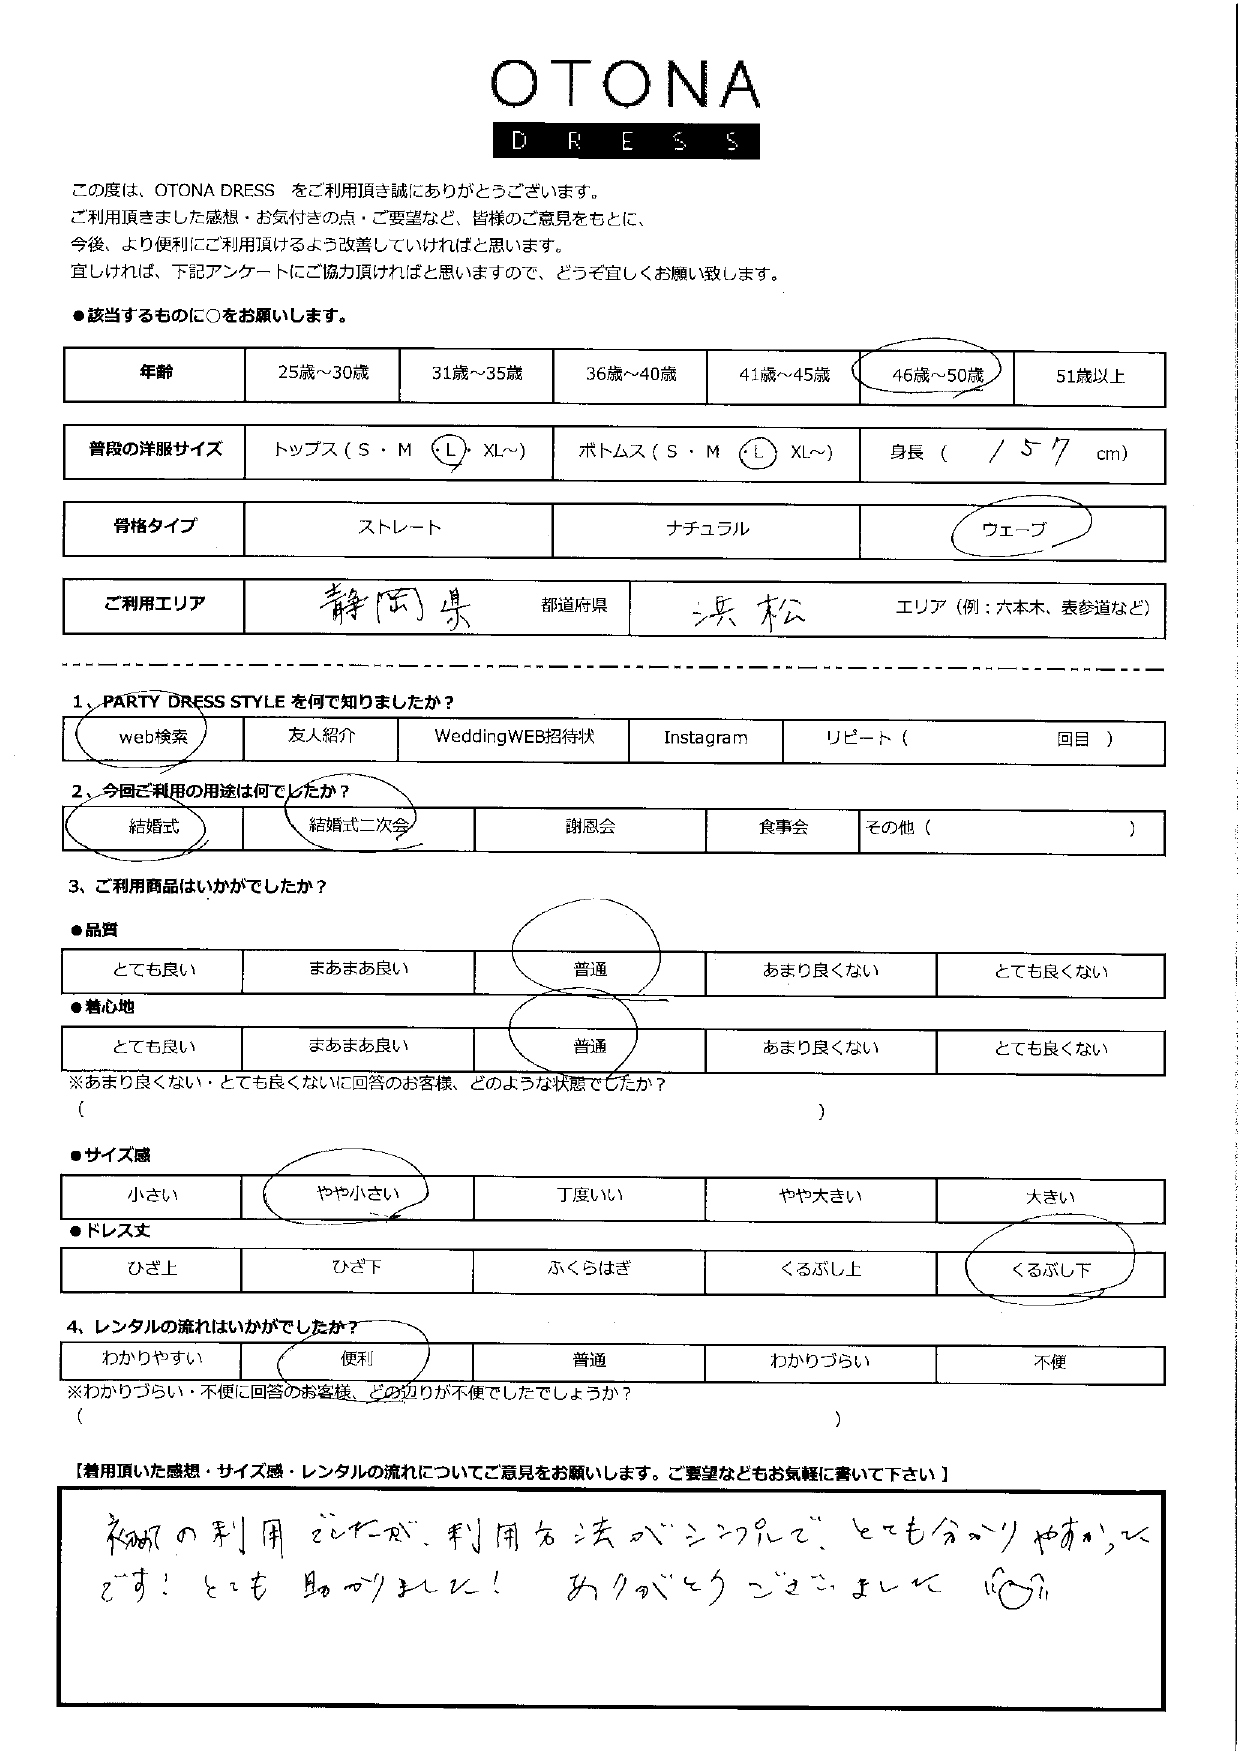 OTONA
DRESS
この度は、OTONA DRESS をご利用頂き誠にありがとうございます。
ご利用頂きました感想・お気付きの点・ご要望など、皆様のご意見をもとに、
今後、より便利にご利用頂けるよう改善していければと思います。
宜しければ、下記アンケートにご協力頂ければと思いますので、どうぞ宜しくお願い致します。
●該当するものに○をお願いします。
年齢 25歳～30歳 31歳～35歳 36歳～40歳 41歳～45歳 46歳～50歳 51歳以上
普段の洋服サイズ トップス ( S ・ M ・L・ XL～) ボトムス ( S ・ M ・L XL～) 身長 ( 157 cm)
骨格タイプ ストレート ナチュラル ウェーブ
ご利用エリア 静岡県 都道府県 浜松 エリア（例：六本木、表参道など）
1、PARTY DRESS STYLE を何で知りましたか？
web検索 友人紹介 WeddingWEB招待状 Instagram リピート ( 回目 )
2、今回ご利用の用途は何でしたか？
結婚式 結婚式二次会 謝恩会 食事会 その他 ( )
3、ご利用商品はいかがでしたか？
●品質
とても良い まあまあ良い 普通 あまり良くない とても良くない
●着心地
とても良い まあまあ良い 普通 あまり良くない とても良くない
※あまり良くない・とても良くないに回答のお客様、どのような状態でしたか？
( )
●サイズ感
小さい やや小さい 丁度いい やや大きい 大きい
●ドレス丈
ひざ上 ひざ下 ふくらはぎ くるぶし上 くるぶし下
4、レンタルの流れはいかがでしたか？
わかりやすい 便利 普通 わかりづらい 不便
※わかりづらい・不便に回答のお客様、どの辺りが不便でしたでしょうか？
( )
【着用頂いた感想・サイズ感・レンタルの流れについてご意見をお願いします。ご要望などもお気軽に書いて下さい】
の利用でしたが、利用方法がシンプルで、とても分かりやすかった
です！とても助かりました！ ありがとうございました